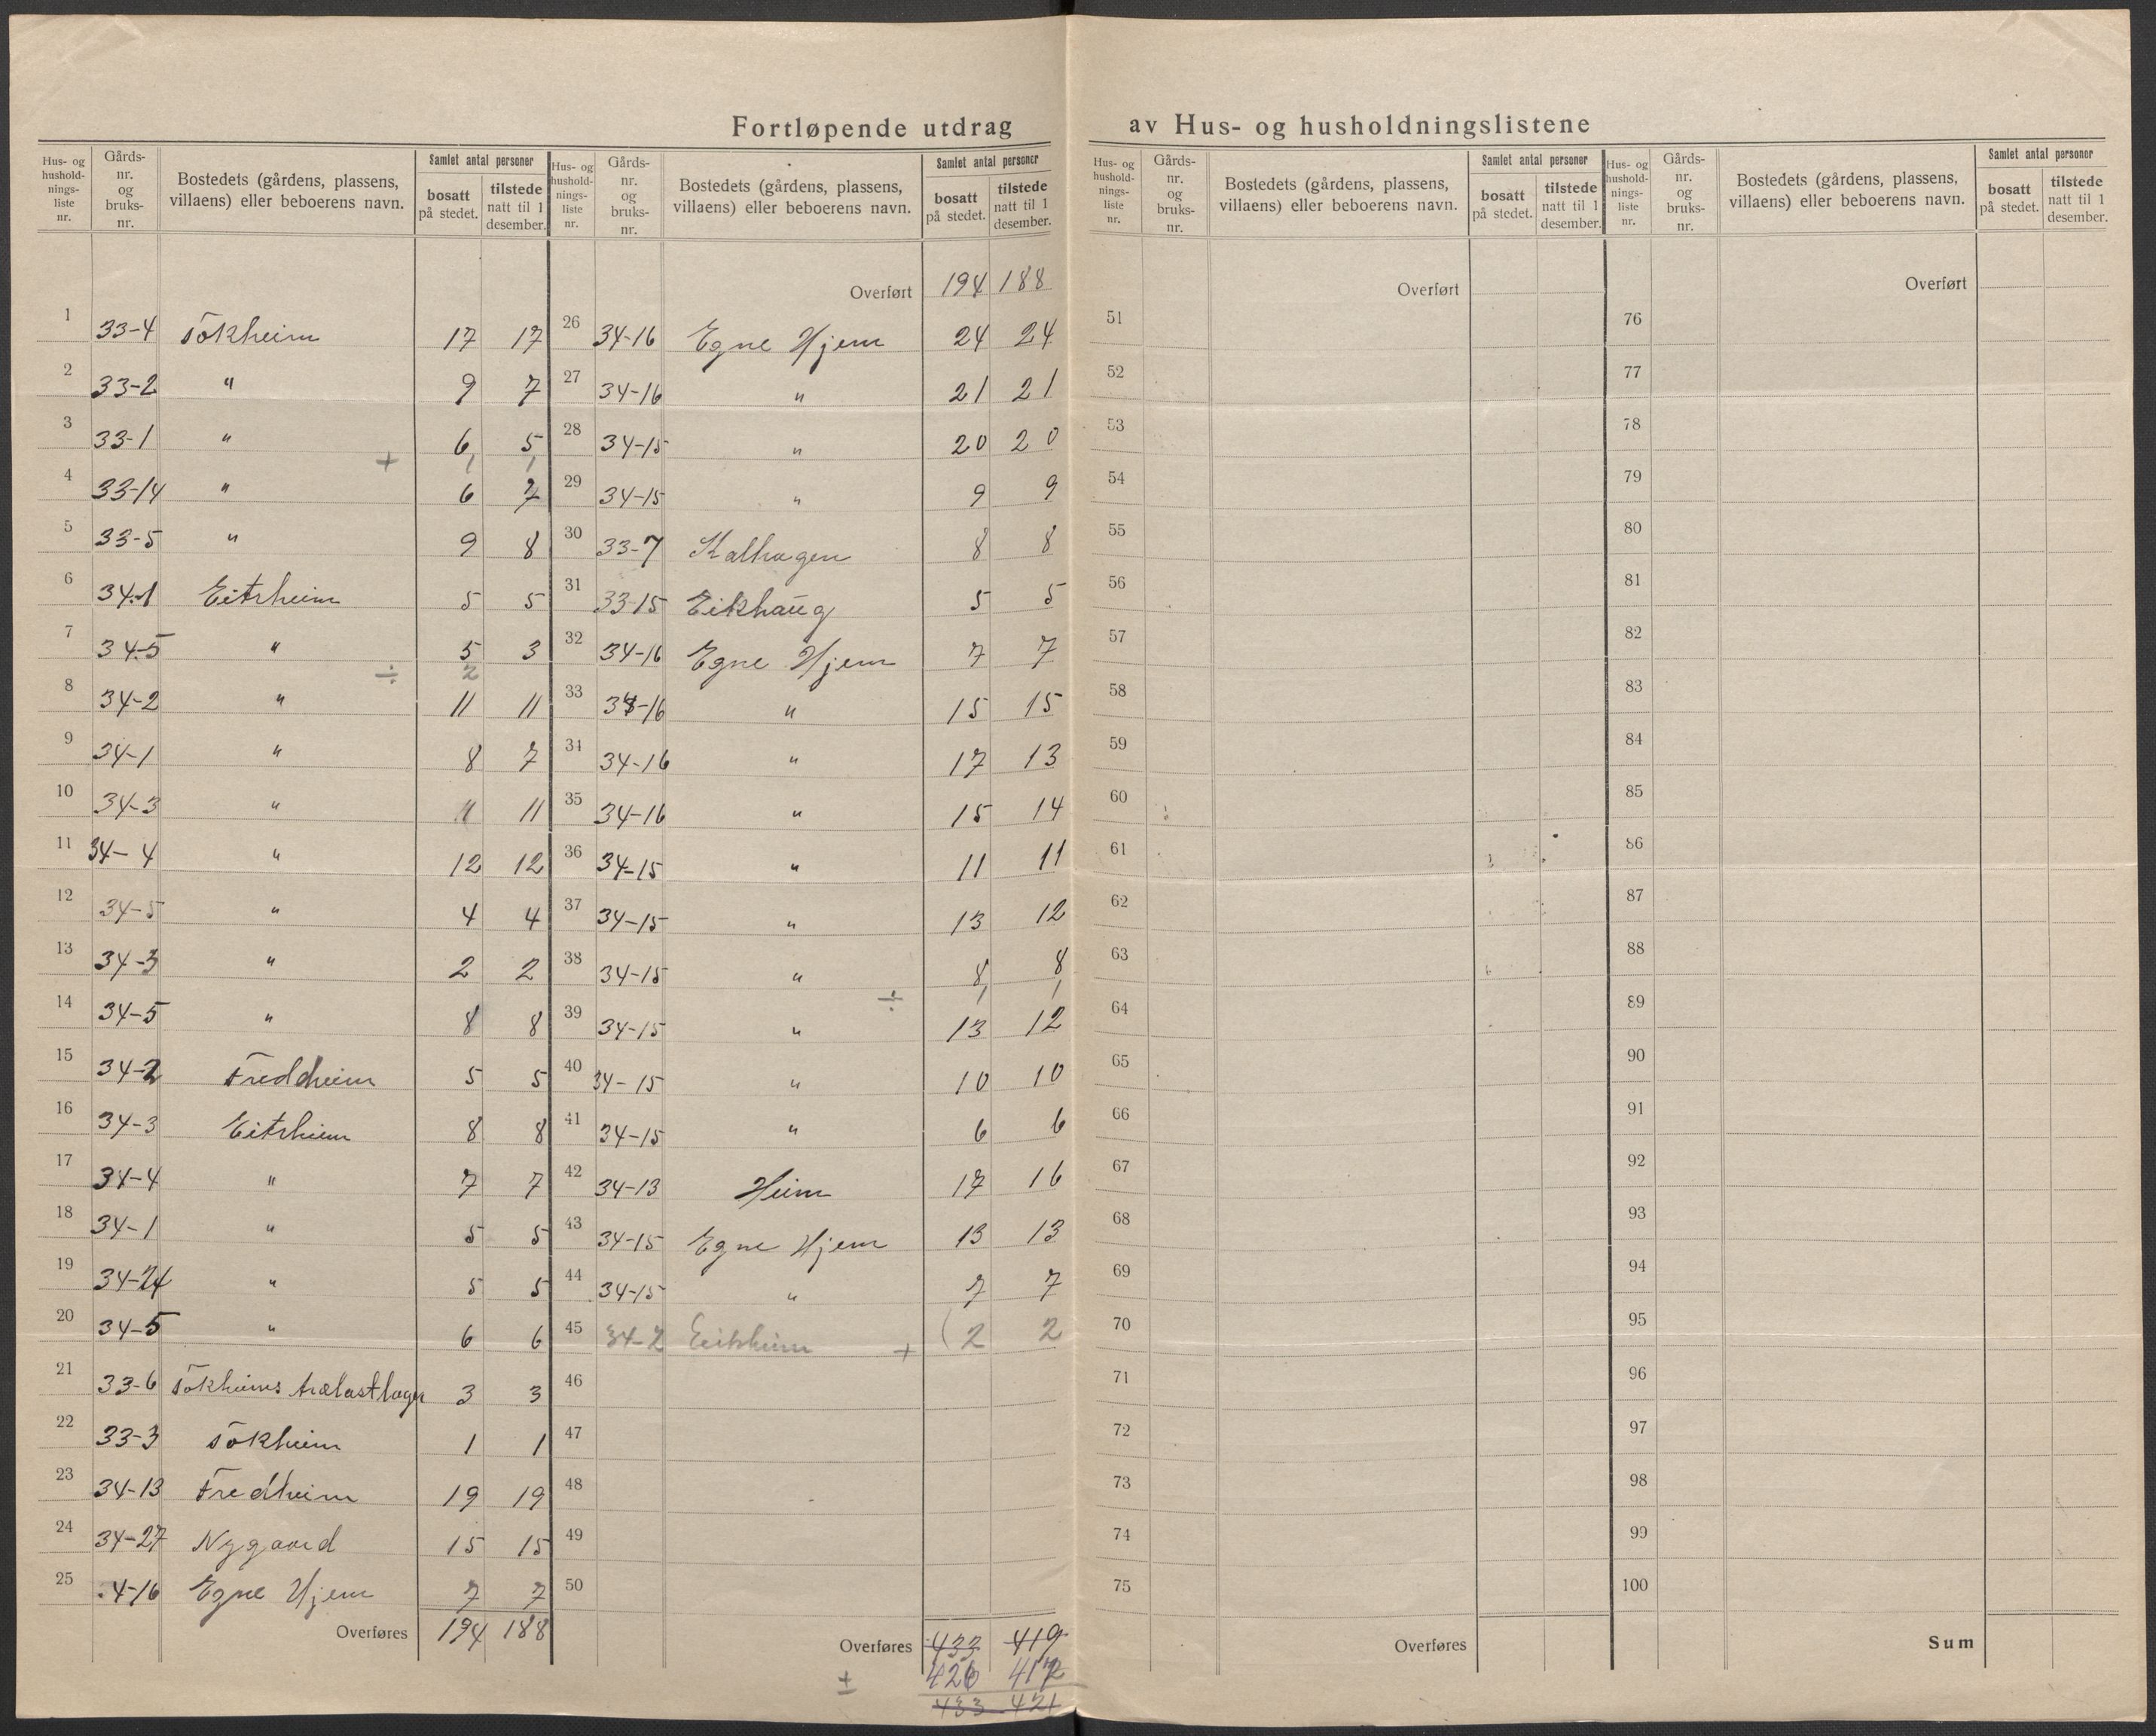 Fortløpende utdrag av Hus- og husholdningslistene
Hus- og hushold-nings-liste nr. | Gårds-nr. og bruks-nr. | Bostedets (gårdens, plassens, villaens) eller beboerens navn. | Samlet antal personer | bosatt på stedet. | tilstede natt til 1 desember.
1 33-4 Tokheim 17 17
2 33-2 " 9 7
3 33-1 " 6 5
+ 1 1
4 33-14 " 6 7
5 33-5 " 9 8
6 34-1 Eitrheim 5 5
7 34-5 " 5 3
÷ 2
8 34-2 " 11 11
9 34-1 " 8 7
10 34-3 " 11 11
11 34-4 " 12 12
12 34-5 " 4 4
13 34-3 " 2 2
14 34-5 " 8 8
15 34-2 Fredheim 5 5
16 34-3 Eitrheim 8 8
17 34-4 " 7 7
18 34-1 " 5 5
19 34-24 " 5 5
20 34-5 " 6 6
21 33-6 Tokheims trælastlager 3 3
22 33-3 Tokheim 1 1
23 34-13 Fredheim 19 19
24 34-27 Nygaard 15 15
25 4-16 Egne Hjem 7 7
Overføres 194 188
Hus- og hushold-nings-liste nr. | Gårds-nr. og bruks-nr. | Bostedets (gårdens, plassens, villaens) eller beboerens navn. | Samlet antal personer | bosatt på stedet. | tilstede natt til 1 desember.
Overført 194 188
26 34-16 Egne Hjem 24 24
27 34-16 " 21 21
28 34-15 " 20 20
29 34-15 " 9 9
30 33-7 Kalhagen 8 8
31 33-15 Eikhaug 5 5
32 34-16 Egne Hjem 7 7
33 34-16 " 15 15
34 34-16 " 17 13
35 34-16 " 15 14
36 34-15 " 11 11
37 34-15 " 13 12
38 34-15 " 8 8
÷ 1 1
39 34-15 " 13 12
40 34-15 " 10 10
41 34-15 " 6 6
42 34-13 Heim 17 16
43 34-15 Egne Hjem 13 13
44 34-15 " 7 7
45 34-2 Eitrheim + (2 2
46
47
48
49
50
Overføres 433 419
± 426 417
433 421
Hus- og hushold-nings-liste nr. | Gårds-nr. og bruks-nr. | Bostedets (gårdens, plassens, villaens) eller beboerens navn. | Samlet antal personer | bosatt på stedet. | tilstede natt til 1 desember.
Overført
51
52
53
54
55
56
57
58
59
60
61
62
63
64
65
66
67
68
69
70
71
72
73
74
75
Overføres
Hus- og hushold-nings-liste nr. | Gårds-nr. og bruks-nr. | Bostedets (gårdens, plassens, villaens) eller beboerens navn. | Samlet antal personer | bosatt på stedet. | tilstede natt til 1 desember.
Overført
76
77
78
79
80
81
82
83
84
85
86
87
88
89
90
91
92
93
94
95
96
97
98
99
100
Sum